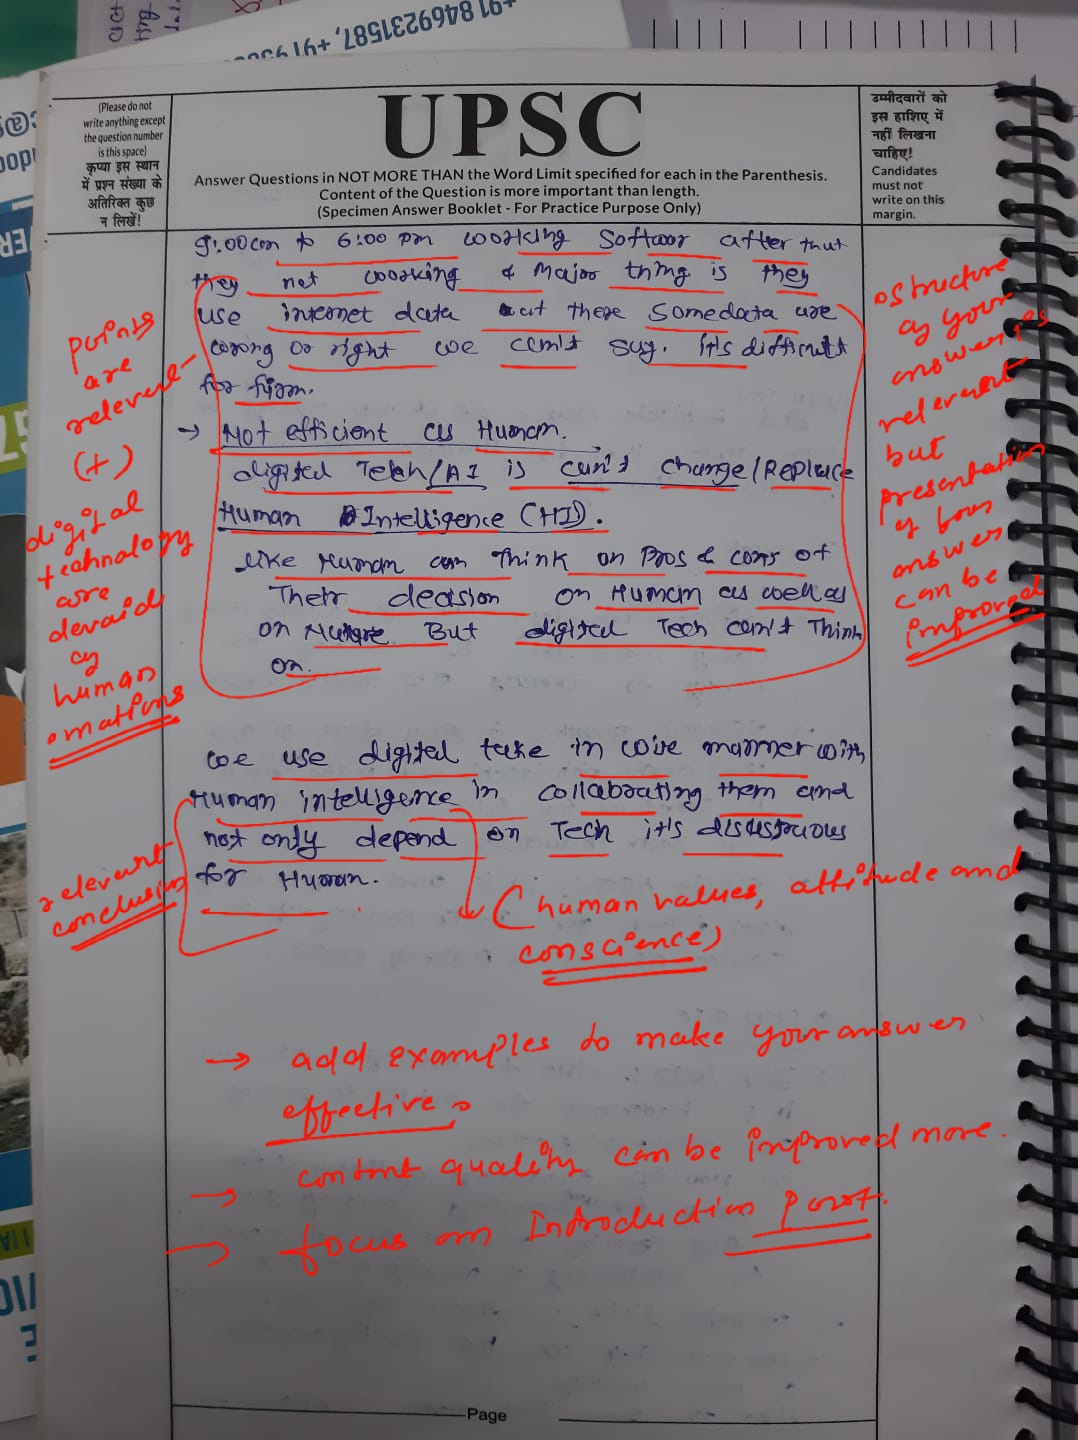 +91 8469231587, +91 9
(Please do not
write anything except
the question number
is this space)
कृप्या इस स्थान
में प्रश्न संख्या के
अतिरिक्त कुछ
न लिखें!
UPSC
Answer Questions in NOT MORE THAN the Word Limit specified for each in the Parenthesis.
Content of the Question is more important than length.
(Specimen Answer Booklet - For Practice Purpose Only)
उम्मीदवारों को
इस हाशिए में
नहीं लिखना
चाहिए!
Candidates
must not
write on this
margin.
to 6:00 pm working after that
they not working & Major thing is they
use internet data but there some data are
wrong or right we can't say. it's difficult
for firm.
→ Not efficient as Human.
digital Tech/AI is can't change/Replace
Human Intelligence (HI).
like Human can Think on Pros & cons of
Their decision on Human as well as
on Nature But digital Tech can't Think
on.
we use digital take in wise manner with
Human intelligence in collaborating them and
not only depend on Tech it's disastrous
for Human.
points
are
relevent
(+)
digital
technology
are
devoid
of
human
emotions
structure
of your
answer is
relevent
but
presentation
of your
answer
can be
improved
relevent
conclusion
(human values, attitude and
conscience)
→ add examples to make your answer
effective.
→ content quality can be improved more.
→ focus on Introduction part.
Page